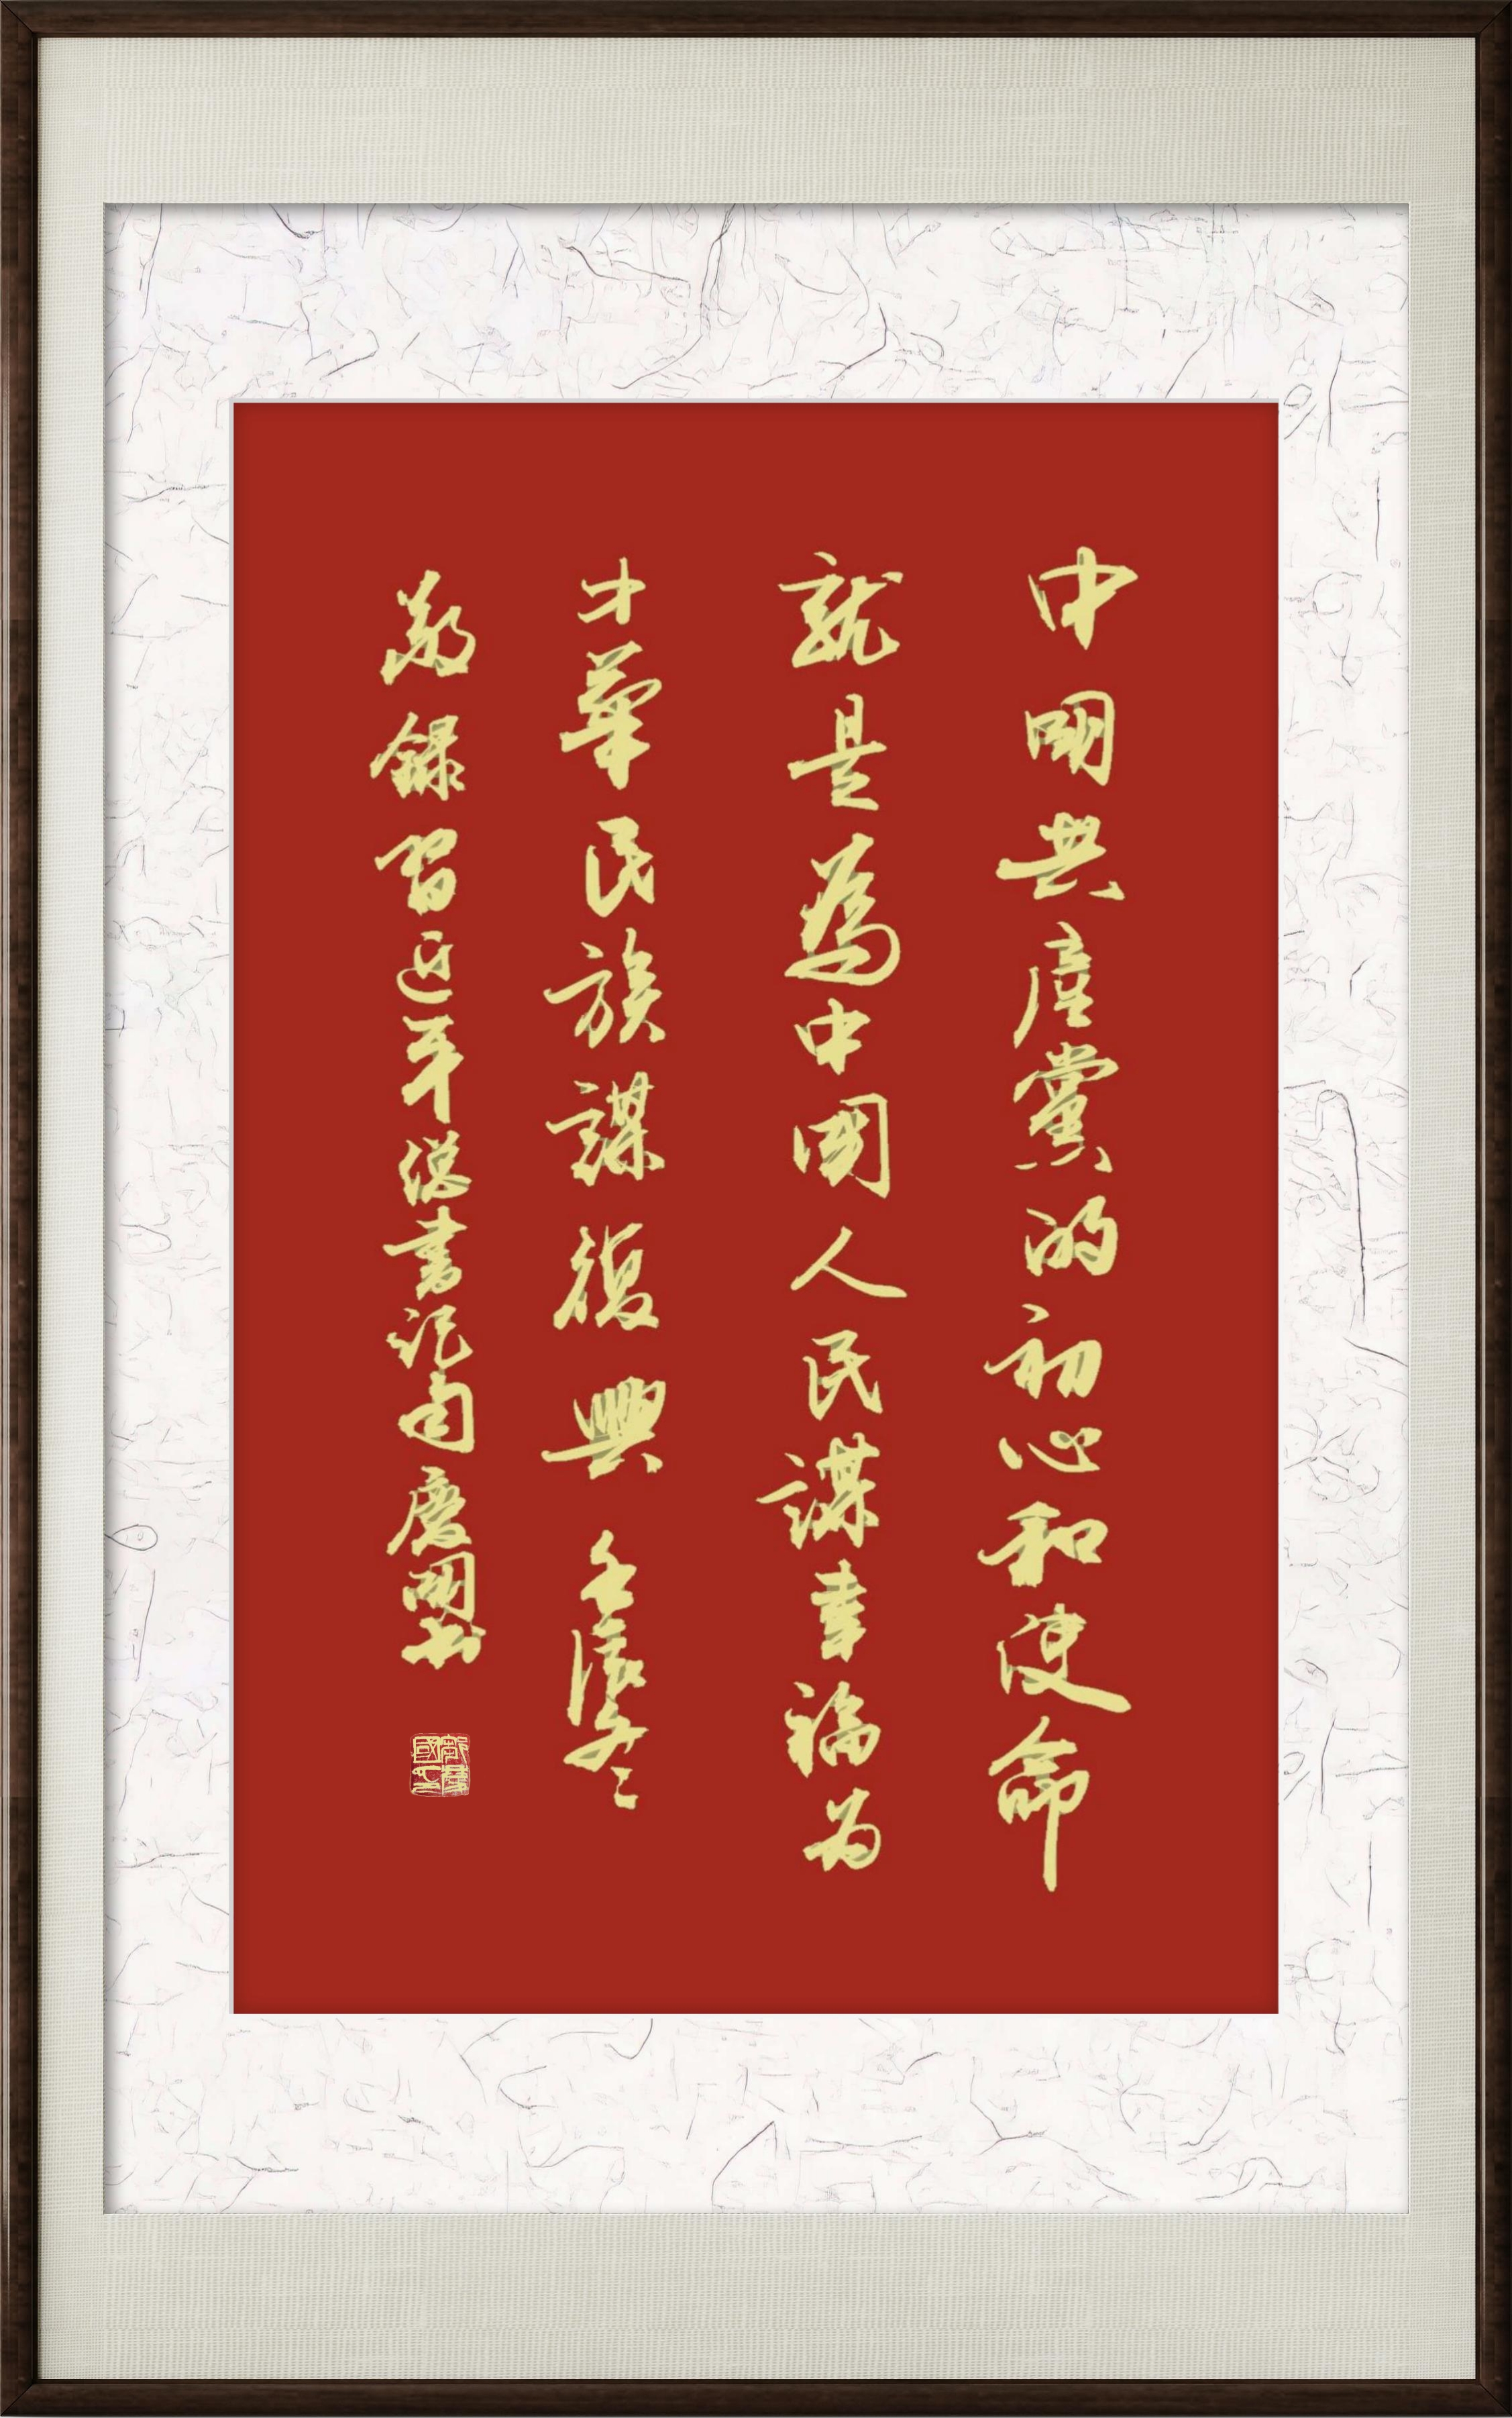 中國共產黨的初心和使命
就是為中國人民謀幸福为
中華民族謀復興 壬寅冬
敬録習近平總書記句慶國书